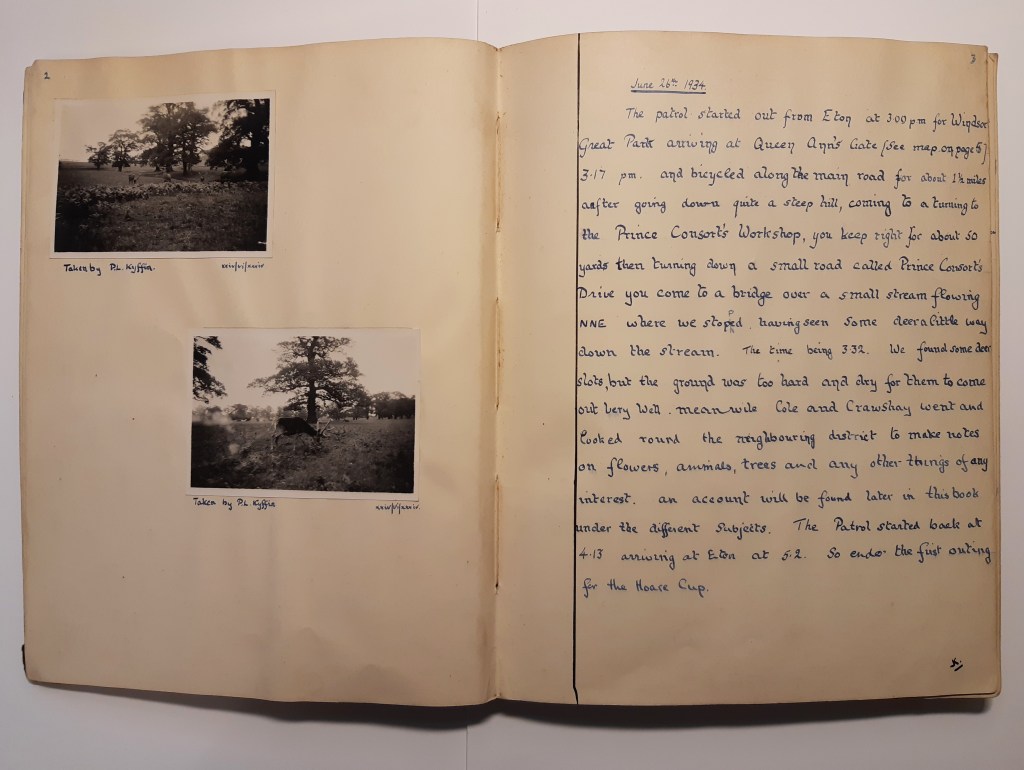 2
Taken by P.L. Kyffin.
xxiv/vi/xxxiv
Taken by P.L. Kyffin
xxiv/vi/xxxiv.
3
June 26th 1934.
The patrol started out from Eton at 3.00 pm for Windsor
Great Park arriving at Queen Ann's Gate (see map on page 5)
3.17 pm. and bicycled along the main road for about 1½ miles
aafter going down quite a steep hill, coming to a turning to
the Prince Consort's Workshop, you keep right for about 50
yards then turning down a small road called Prince Consort's
Drive you come to a bridge over a small stream flowing
NNE where we stoped, having seen some deer a little way
down the stream. The time being 3.32. We found some deer
slots, but the ground was too hard and dry for them to come
out very well. meanwile Cole and Crawshay went and
looked round the neighbouring district to make notes
on flowers, animals, trees and any other things of any
interest. an account will be found later in this book
under the different Subjects. The Patrol started back at
4.13 arriving at Eton at 5.2. So ends the first outing
for the Hoare Cup.